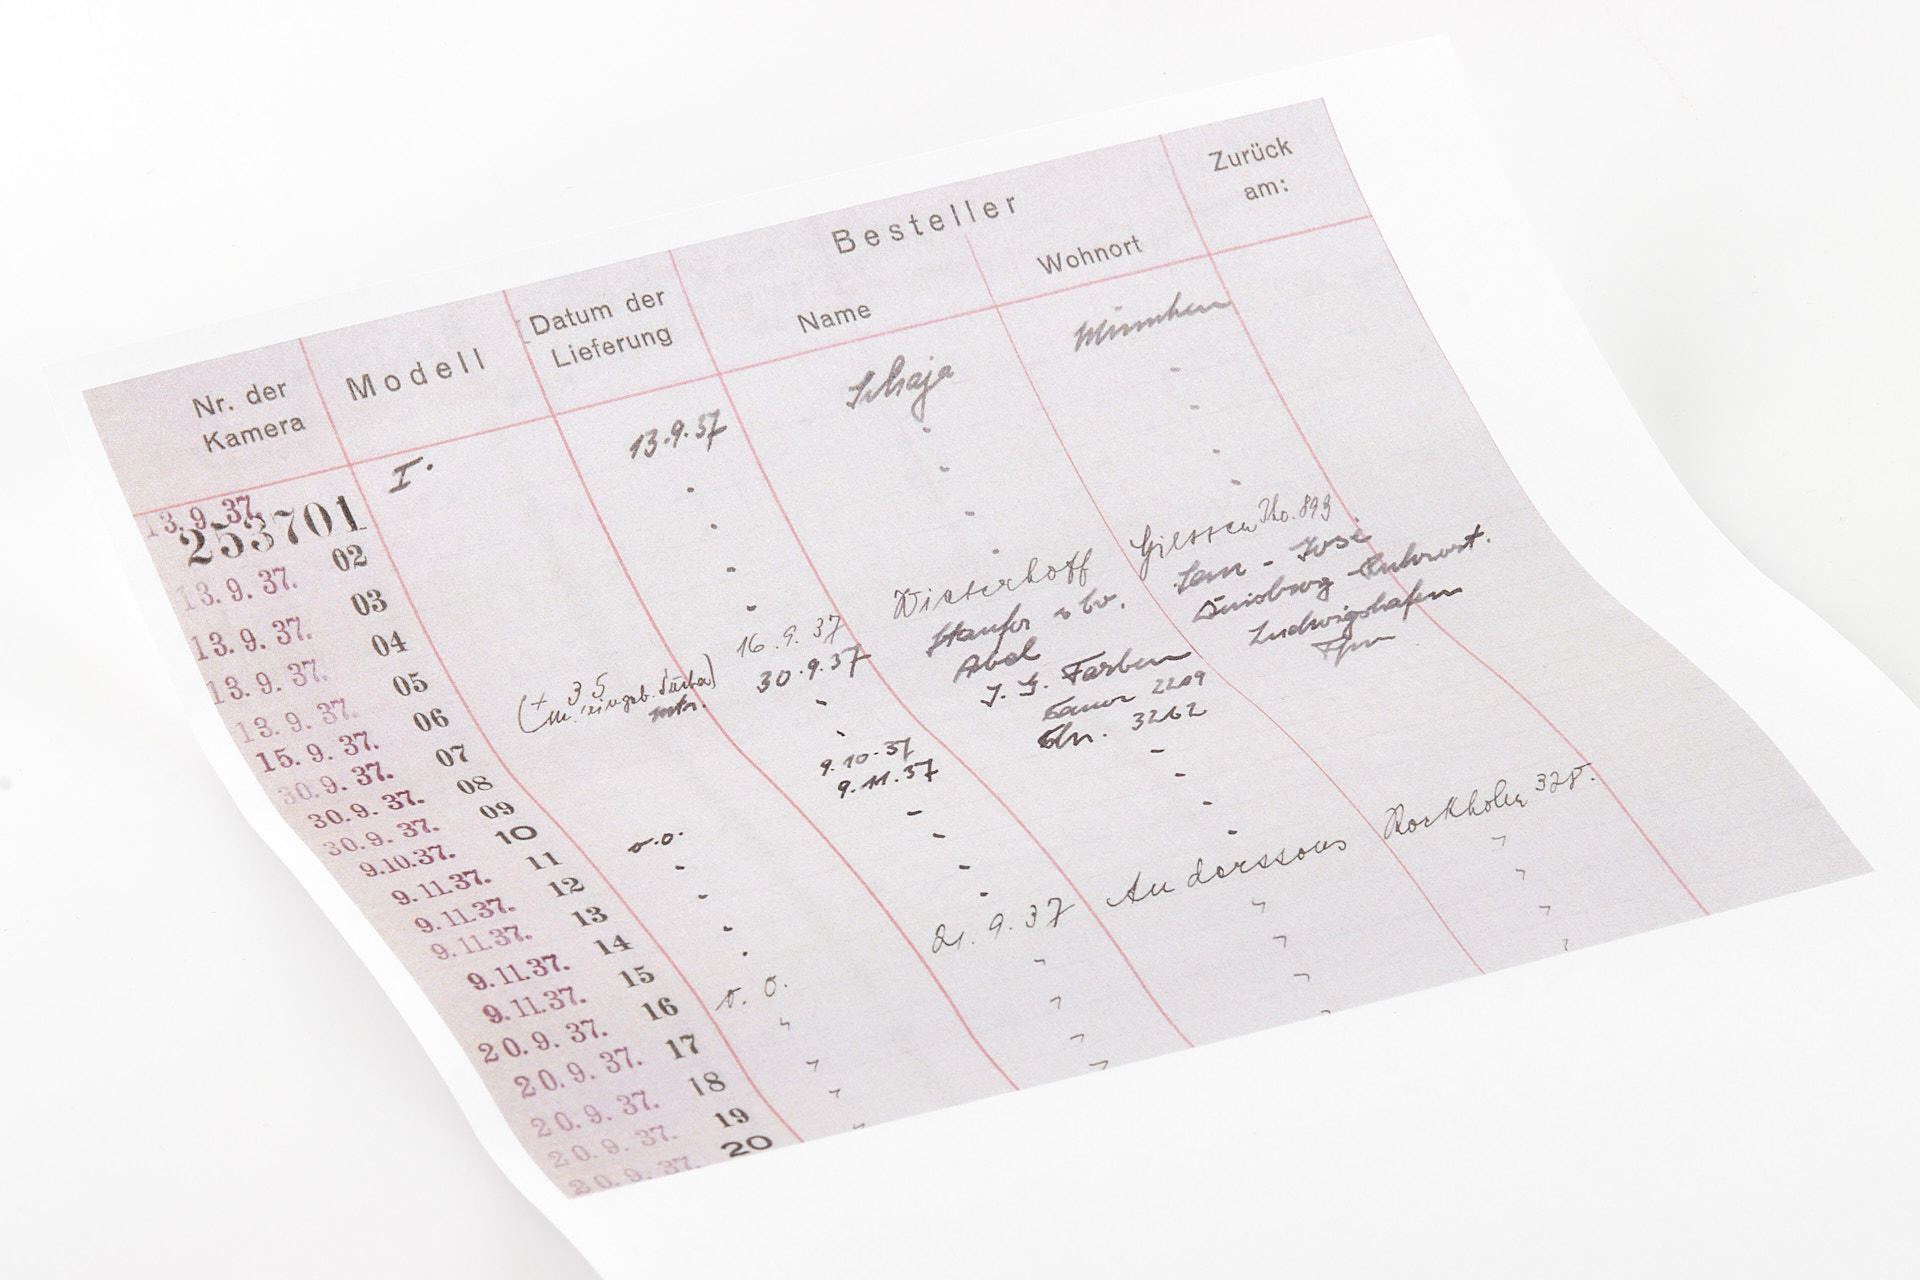 Nr. der Kamera
Modell
Datum der Lieferung
Besteller
Name
Wohnort
Zurück am:
13.9.37. 253701 I. 13.9.37 Schaja München
13.9.37. 02 " " "
13.9.37. 03 " " "
13.9.37. 04 " " "
13.9.37. 05 " " "
15.9.37. 06 16.9.37 Winterhoff Giessen No. 899
30.9.37. 07 (+ 35 m. eingeb. Sucher) 30.9.37
30.9.37. 08 " Abel Duisburg-Ruhrort.
30.9.37. 09 " I. G. Farben Ludwigshafen
9.10.37. 10 9.10.37 2209
9.11.37. 11 v.o. 9.11.37 3262
9.11.37. 12 " " "
9.11.37. 13 " " "
9.11.37. 14 " " "
9.11.37. 15 " " "
20.9.37. 16 v. o. 21.9.37 Anderssons 328.
20.9.37. 17 " " " "
20.9.37. 18 " " " "
20.9.37. 19 " " " "
20.9.37. 20 " " " "